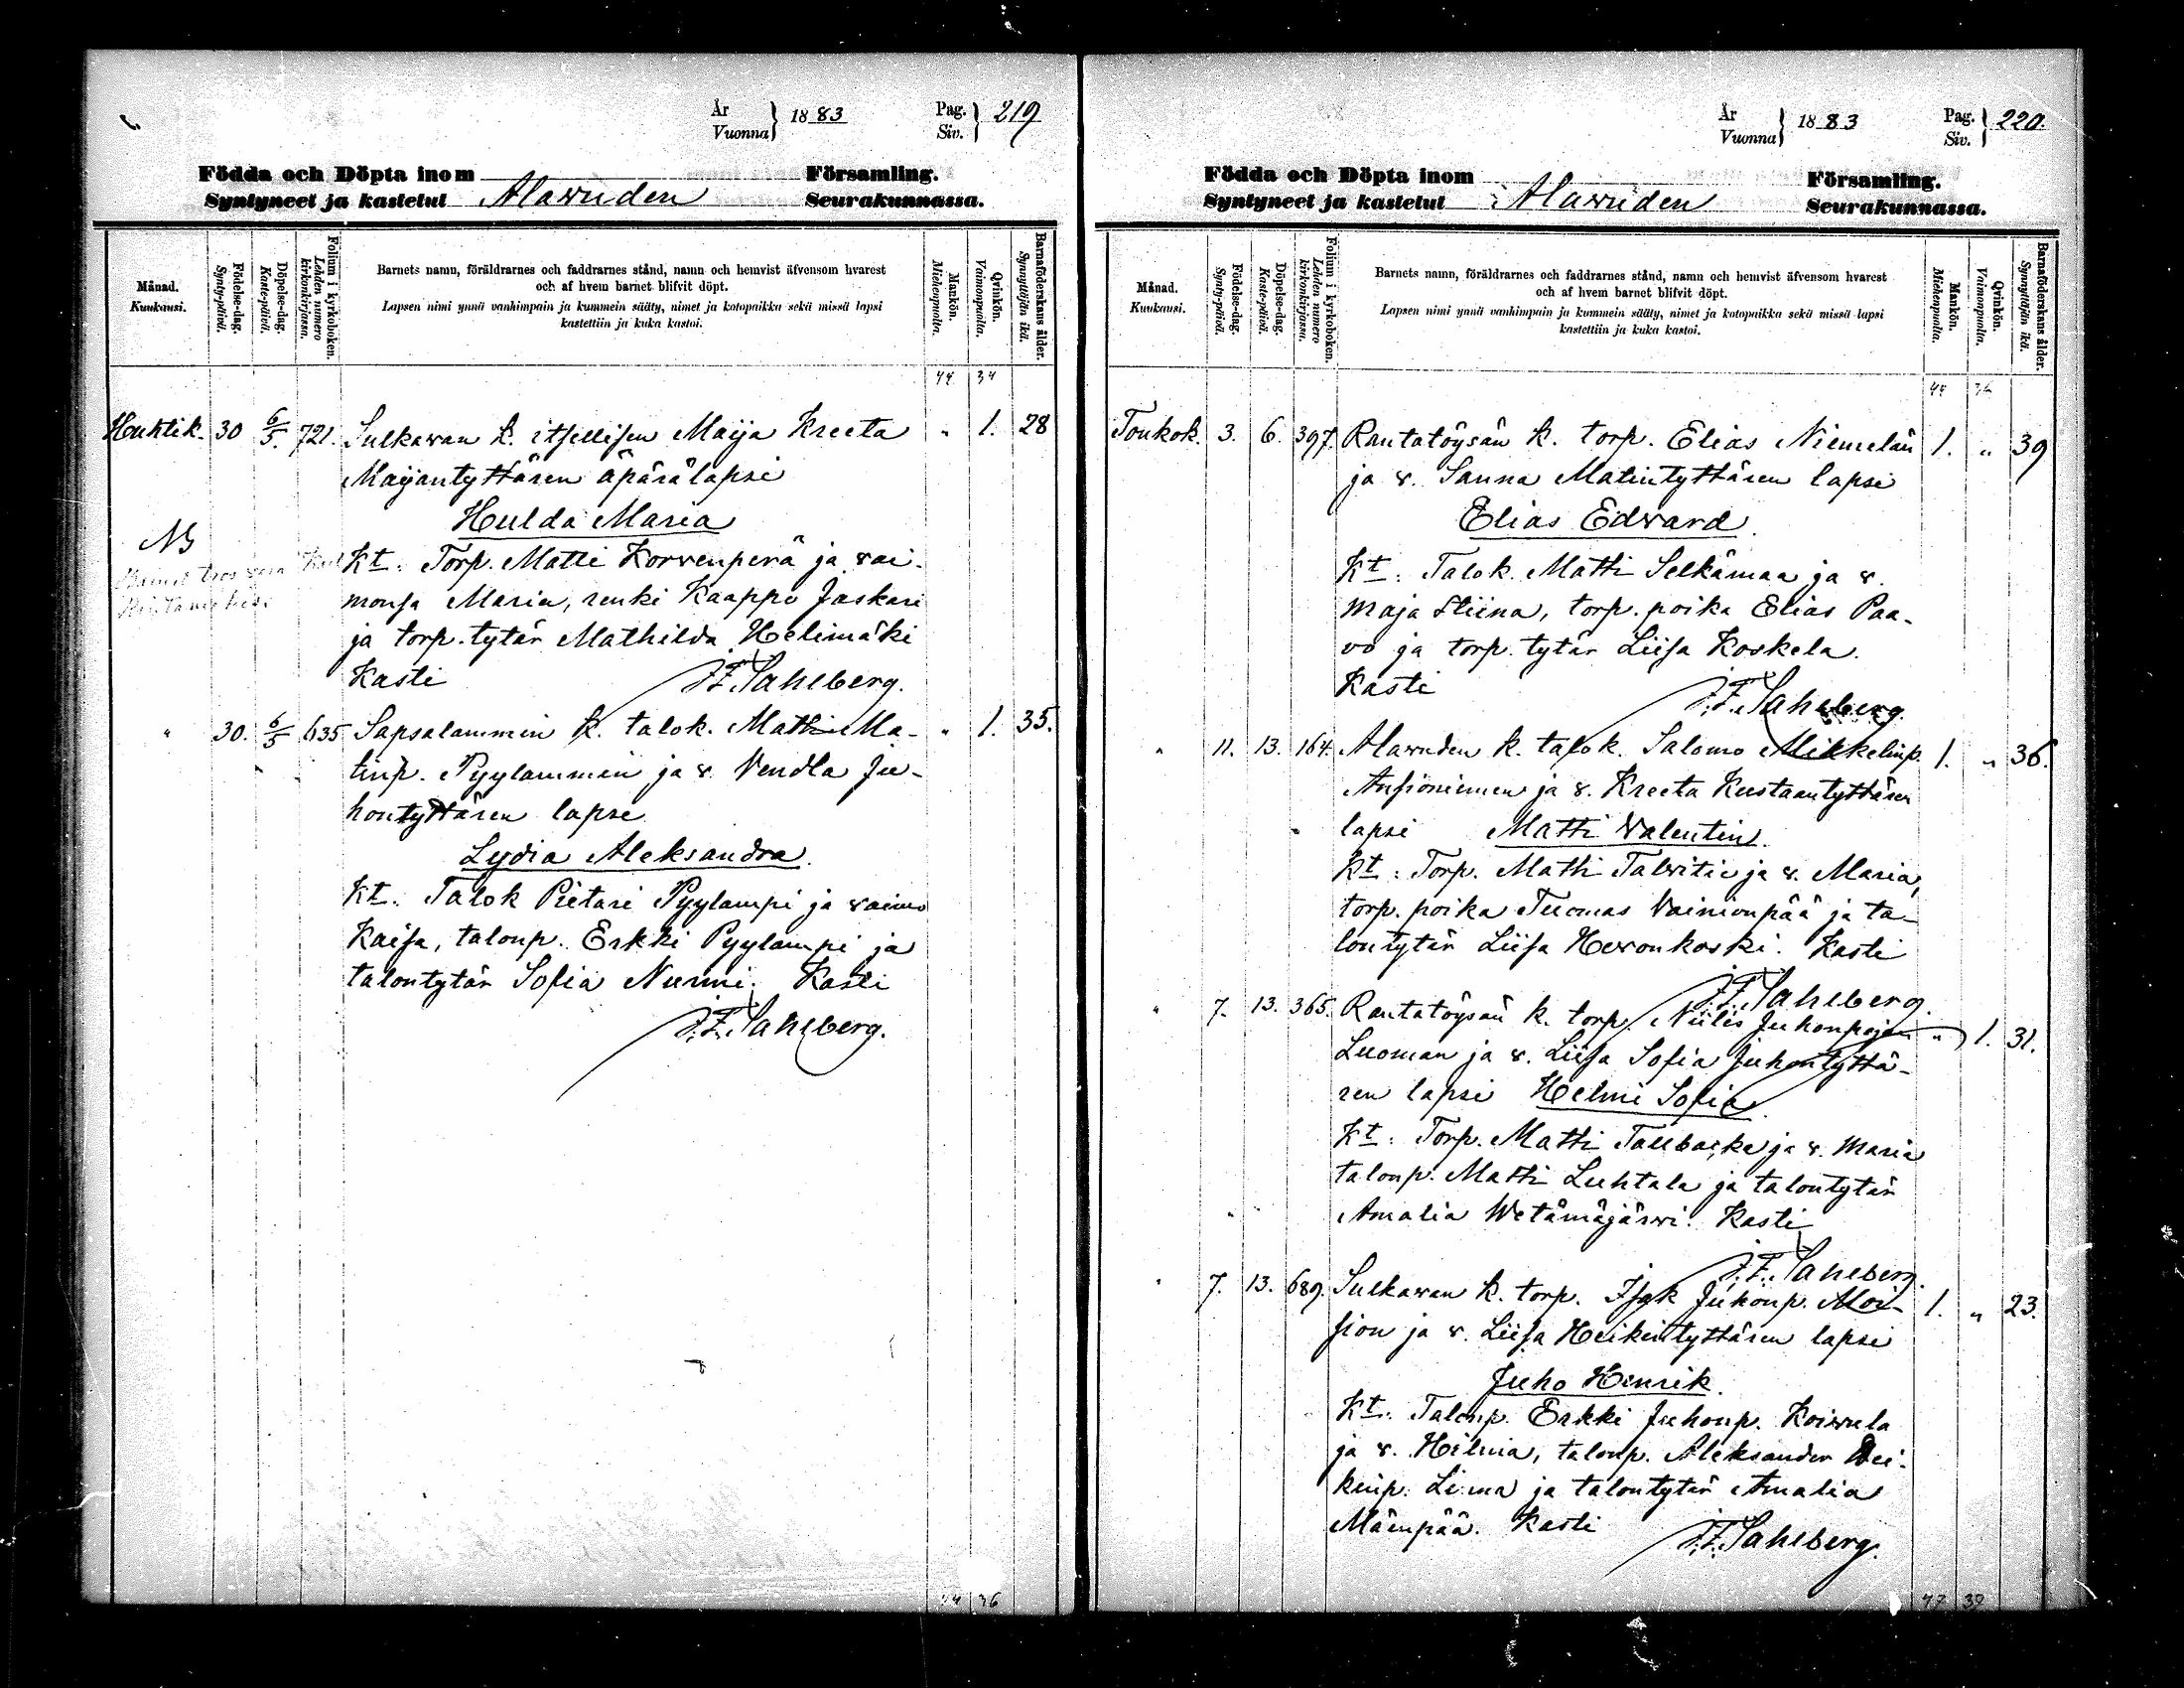 År
Vuonna } 1883
Pag.
Siv. } 219
Födda och Döpta inom Församling.
Syntyneet ja kastetut Alawuden Seurakunnassa.
Månad.
Kuukausi.
Födelse-dag.
Synty-päivä.
Döpelse-dag.
Kaste-päivä.
Folium i kyrkoboken.
Lehden numero
kirkonkirjassa.
Barnets namn, föräldrarnes och faddrarnes stånd, namn och hemvist äfvensom hvarest
och af hvem barnet blifvit döpt.
Lapsen nimi ynnä vanhimpain ja kummein sääty, nimet ja kotopaikka sekä missä lapsi
kastettiin ja kuka kastoi.
Mankön.
Miehenpuolta.
Qvinkön.
Vaimonpuolta.
Barnaföderskans ålder.
Synnyttäjän ikä.
44 34
Huhtik. 30 6/5 721. Sulkawan k. itsellisen Maija Kreeta " 1. 28
Maijantyttären äpärälapsi
Hulda Maria
NB
Kt: Torp. Matti Korvenperä ja vai-
monsa Maria, renki Kaappo Jaskari
ja torp. tytär Mathilda Helimäki
Kasti J.F. Sahlberg.
" 30. 6/5 635 Sapsalammin k. talok. Matti Ma- " 1. 35.
tinp. Pyylammin ja v. Vendla Ju-
hontyttären lapse
Lydia Aleksandra.
Kt. Talok Pietari Pyylampi ja vaimo
Kaisa, talonp. Erkki Pyylampi ja
talontytär Sofia Nurmi. Kasti
J.F. Sahlberg.
44 36
År
Vuonna } 1883
Pag.
Siv. } 220.
Födda och Döpta inom Församling.
Syntyneet ja kastetut Alawuden Seurakunnassa.
Månad.
Kuukausi.
Födelse-dag.
Synty-päivä.
Döpelse-dag.
Kaste-päivä.
Folium i kyrkoboken.
Lehden numero
kirkonkirjassa.
Barnets namn, föräldrarnes och faddrarnes stånd, namn och hemvist äfvensom hvarest
och af hvem barnet blifvit döpt.
Lapsen nimi ynnä vanhimpain ja kummein sääty, nimet ja kotopaikka sekä missä lapsi
kastettiin ja kuka kastoi.
Mankön.
Miehenpuolta.
Qvinkön.
Vaimonpuolta.
Barnaföderskans ålder.
Synnyttäjän ikä.
44 36
Toukok. 3. 6. 397. Rantatöysän k. torp. Elias Niemelän 1. " 39
ja v. Sanna Matintyttären lapsi
Elias Edvard.
Kt: Talok. Matti Selkämaa ja v.
Maja Stiina, torp. poika Elias Paa-
vo ja torp. tytär Liisa Koskela.
Kasti J.F. Sahlberg.
" 11. 13. 164. Alawuden k. talok. Salomo Mikkelinp. 1. " 36.
Ansioniemen ja v. Kreeta Kustaantyttären
lapsi Matti Valentin.
Kt: Torp. Matti Talvitie ja v. Maria,
torp. poika Tuomas Vainionpää ja ta-
lontytär Liisa Hevonkoski. Kasti
J.F. Sahlberg.
" 7. 13. 365. Rantatöysän k. torp. Niilis Juhonpojan " 1. 31.
Luoman ja v. Liisa Sofia Juhontyttä-
ren lapsi Helmi Sofia.
Kt: Torp. Matti Tallbacka ja v. Maria
talonp. Matti Luhtala ja talontytär
Amalia Wetämäjärvi. Kasti
J.F. Sahlberg.
" 7. 13. 689. Sulkawan k. torp. Isak Juhonp. Moi- 1. " 23.
sion ja v. Liisa Heikintyttären lapsi
Juho Henrik.
Kt: Talonp. Erkki Juhonp. Koivula
ja v. Hilma, talonp. Aleksander Hei-
kinp. Lima ja talontytär Amalia
Mäenpää. Kasti J.F. Sahlberg.
47 39